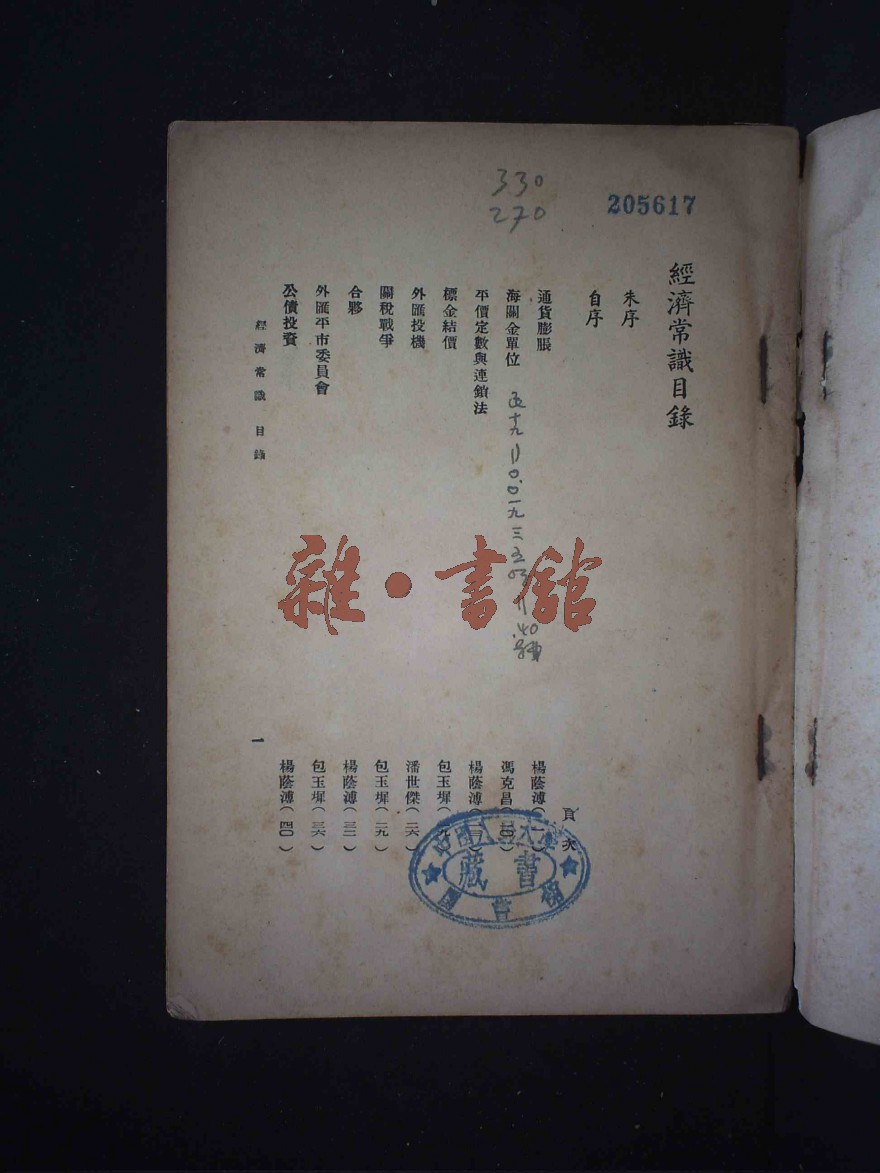 330
270
205617
經濟常識目錄
朱序
自序
頁次
通貨膨脹 楊蔭溥(一)
海關金單位 馮克昌
平價定數與連鎖法 楊蔭溥
標金結價 包玉墀
外匯投機 潘世傑(二六)
關稅戰爭 包玉墀(二九)
合夥 楊蔭溥(三二)
外匯平市委員會 包玉墀(三六)
公債投資 楊蔭溥(四〇)
經濟常識 目錄 一
雜·書館
藏書